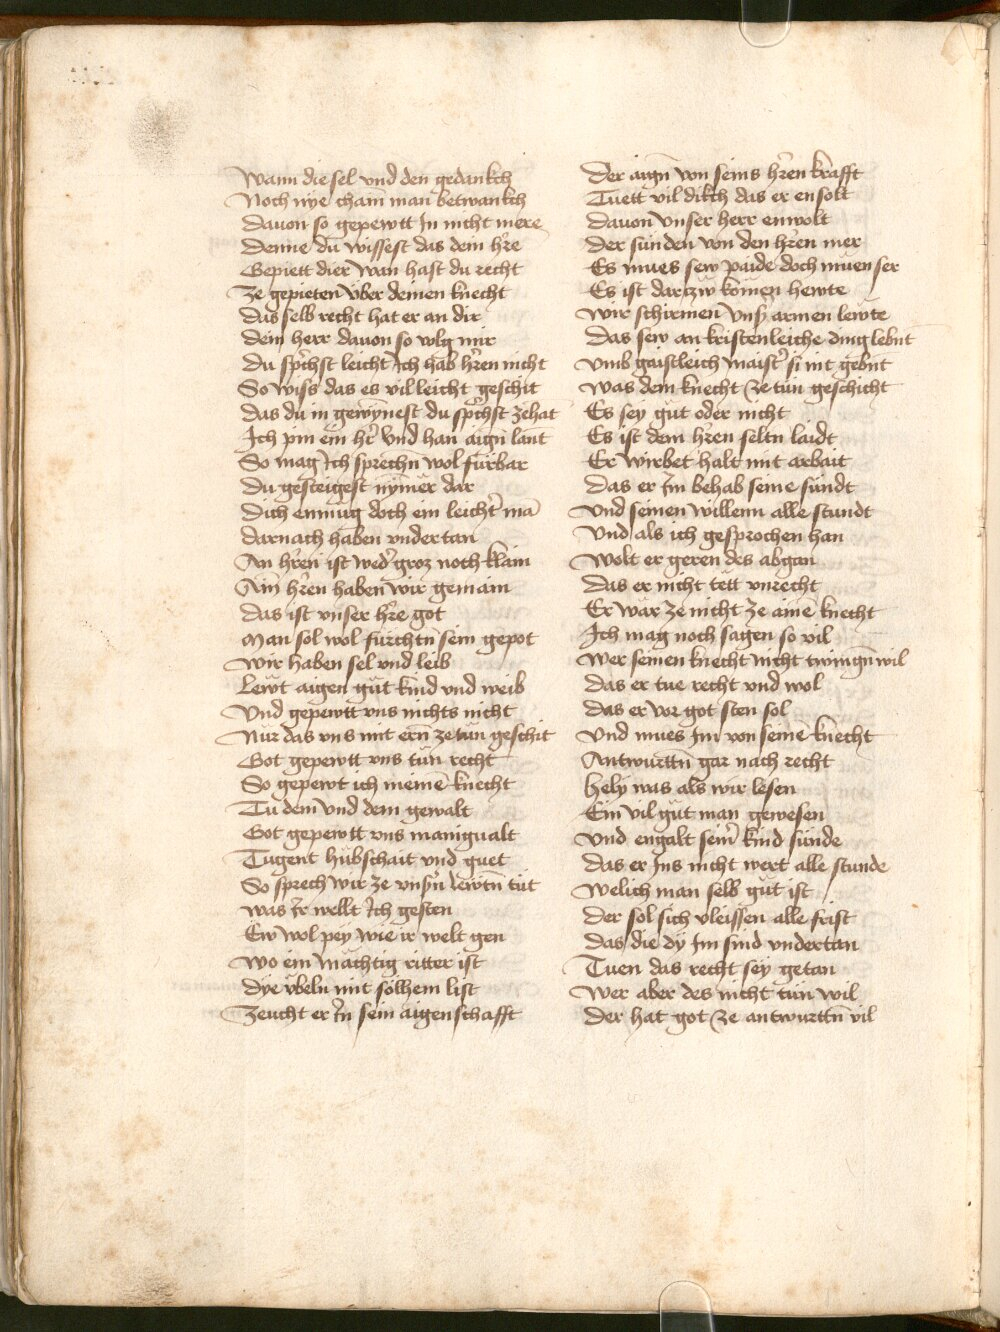 Wann die sel vnd den gedankch
Noch nye cham man betwankch
dauon so gepewtt Im nicht mere
Denne du wissest das dein hre
Gepiett dier wan hast du recht
Ze gepieten vber deinen knecht
das selb recht hat er an dir
dein herr dauon so volg mir
du sprichst leicht Ich hab hren nicht
So wiss das es vil leicht geschit
das du in gewynnest du sprichst zehat
Ich pin ein hr vnd han aign lant
So mag Ich sprechn wol furbar
Du gesteigest nymer dar
Dich enmug doch ein leichter ma
darnach haben vndertan
An hren ist weder groz noch klain
Ain hren haben wir gemain
das ist vnser hre got
Man sol wol furchtn sein gepot
wir haben sel vnd leib
Lewt aigen gut kind vnd weib
Und gepewtt vns nichts nicht
Nur das vns mit ern ze tun geschit
Got gepewtt vns tun recht
So gepewt ich meinē knecht
Tu dem vnd dem gewalt
Got gepewtt vns manigualt
Tugent hubschait vnd guet
So sprech wir ze vnsn lewtn tut
was Ir wellt Ich gesten
Ew wol pey wie ir welt gen
wo ein mächtig ritter ist
dye vbeln mit solhem list
Zeucht er In sein aigenschafft
Der aign von seins hren krafft
Tuett vil dikch das er en solt
dauon vnser herr enwolt
der sunden von den hren mer
Es mues sew paide doch muen ser
Es ist darczw komen hewte
wir schirmen vns armen lewte
Das sew an kristenleiche ding lebnt
Vmb gaistleich maister si nit gebnt
was dem knecht ze tun geschicht
Es sey gut oder nicht
Es ist dem hren seltn laidt
Er wirbet halt mit arbait
das er Im behab seine sundt
und seinen willenn alle stundt
Und als ich gesprochen han
wolt er geren des abgan
das er nicht tett vnrecht
Er war ze nicht ze ainē knecht
Ich mag noch sagen so vil
wer seinen knecht nicht twingn wil
das er tue recht vnd wol
das er vor got sten sol
Und mues Im von seinē knecht
Antwurttn gar nach recht
Hely was als wir lesen
Ein vil gut man gewesen
Und engalt seinr kind sunde
das er Ins nicht wert alle stunde
welich man selb gut ist
der sol sich vleissen alle frist
das die dy Im sind vndertan
Tuen das recht sey getan
wer aber des nicht tun wil
der hat got ze antwurttn vil